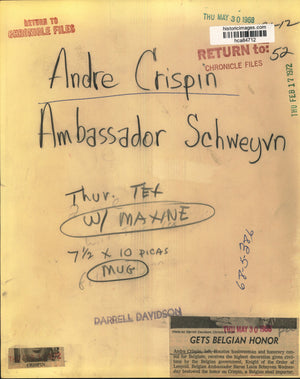 RETURN TO
CHRONICLE FILES
THU MAY 30 1968
historicimages.com
hca84712
-12
RETURN to:
CHRONICLE FILES
52
THU FEB 17 1972
Andre Crispin
Ambassador Schweyvn
Thur. TEX
W/ MAXINE
7 1/2 X 10 PICAS
MUG
DARRELL DAVIDSON
THU MAY 30 1968
GETS BELGIAN HONOR
Andre Crispin, left, Houston businessman and honorary con-
sul for Belgium, receives the highest decoration given civil-
ians by the Belgian government, Knight of the Order of
Leopold. Belgian Ambassador Baron Louis Scheyven Wednes-
day bestowed the honor on Crispin, a Belgian steel importer.
CRISPIN